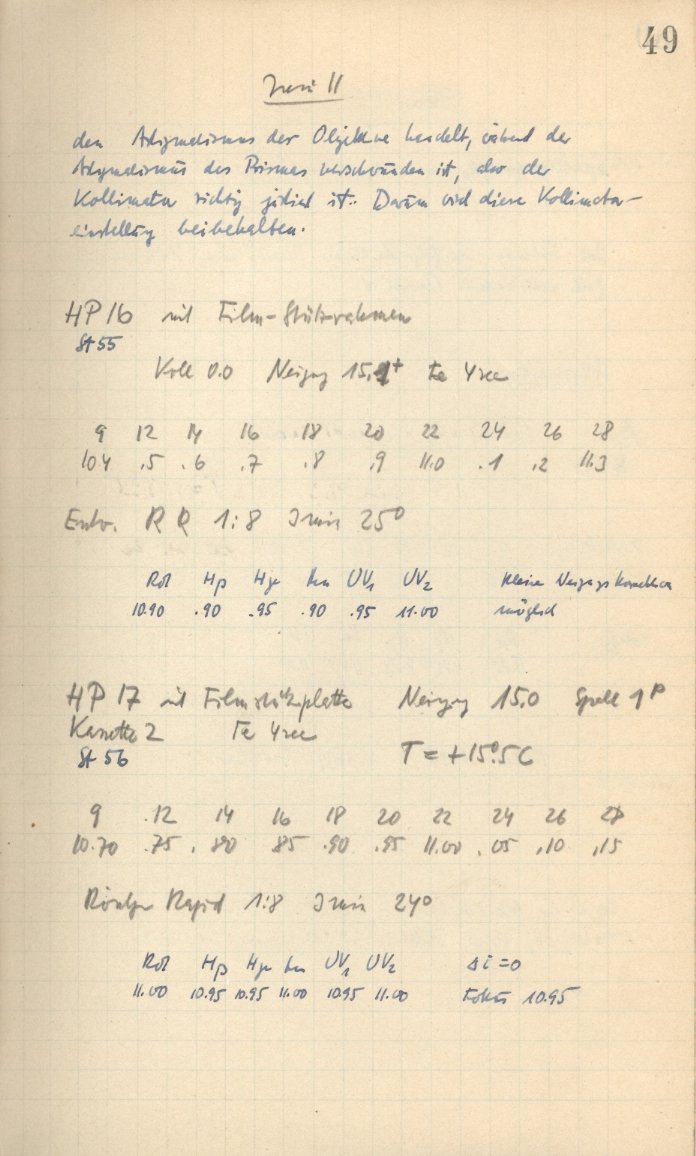 49
II
den Astigmatismus der Objektive handelt, während der
Astigmatismus des Prismas verschwunden ist, also der
Kollimator richtig justiert ist. Darum wird diese Kollimator-
einstellung beibehalten.
HP 16 mit Film-Stützrahmen
St 55
Koll 0.0 Neigung 4 sec
9 12 14 16 18 20 22 24 26 28
10.4 .5 .6 .7 .8 .9 11.0 .1 .2 11.3
Entw. 1:8 3 min 25°
Rot Hβ Hγ UV1 UV2 kleine Neigungskorrektion
10.90 .90 .95 .90 .95 11.00 möglich
HP 17 mit Filmstützplatte Neigung 15.0 Spalt 1P
Kassette 2 4 sec
St 56 T = +15.5 C
9 .12 14 16 18 20 22 24 26 28
10.70 .75 .80 85 .90 .95 11.00 .05 .10 .15
Röntgen Rapid 1:8 3 min 24°
Rot Hβ Hγ UV1 UV2 Δi = 0
11.00 10.95 10.95 11.00 10.95 11.00 Fokus 10.95